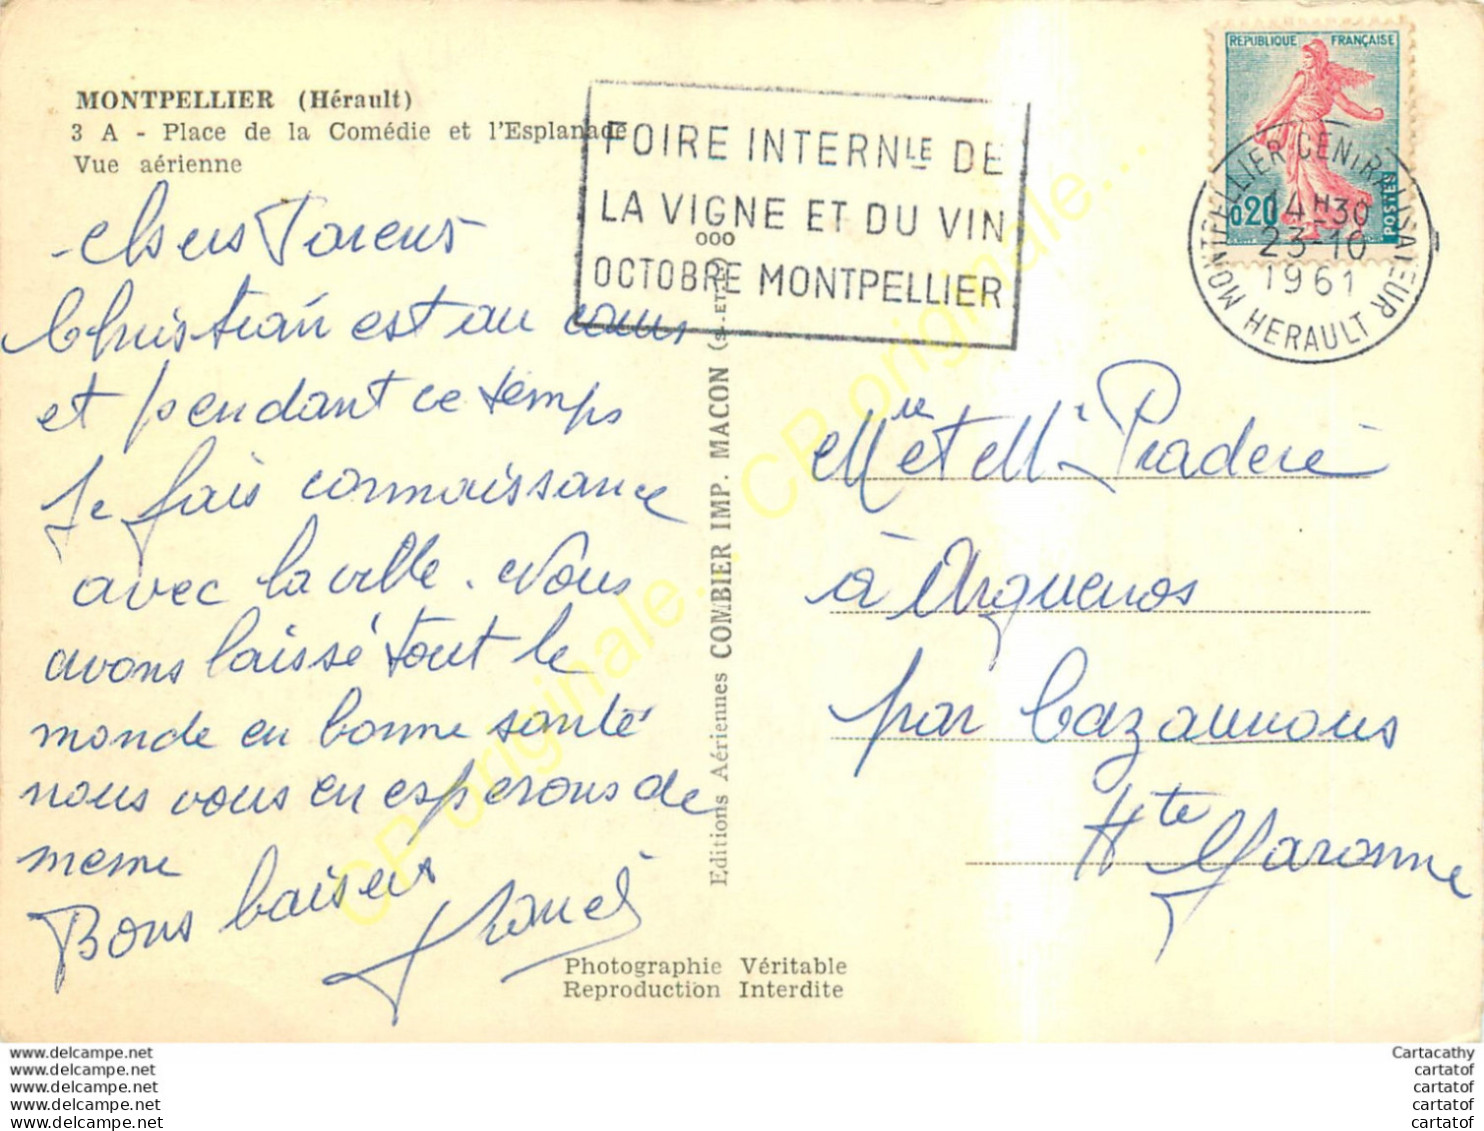 MONTPELLIER (Hérault)
3 A - Place de la Comédie et l'Esplanade
Vue aérienne
FOIRE INTERNLE DE
LA VIGNE ET DU VIN
OCTOBRE MONTPELLIER
REPUBLIQUE FRANÇAISE
0,20
POSTES
MONTPELLIER CENTRALISATEUR
14H30
23-10
1961
HERAULT
- Chers Parents
Christian est au cours
et pendant ce temps
Je fais connaissance
avec la ville. Nous
avons laissé tout le
monde en bonne santé
nous vous en esperons de
meme
Bons baisers
Francis
Mre et Mr Pradere
à Arguenos
par Cazaunous
Hte Garonne
Editions Aériennes COMBIER IMP. MACON (S.-ET-L.)
ooo
Photographie Véritable
Reproduction Interdite
CP originale... CP originale... CP originale...
www.delcampe.net
www.delcampe.net
www.delcampe.net
www.delcampe.net
www.delcampe.net
Cartacathy
cartatof
cartatof
cartatof
cartatof